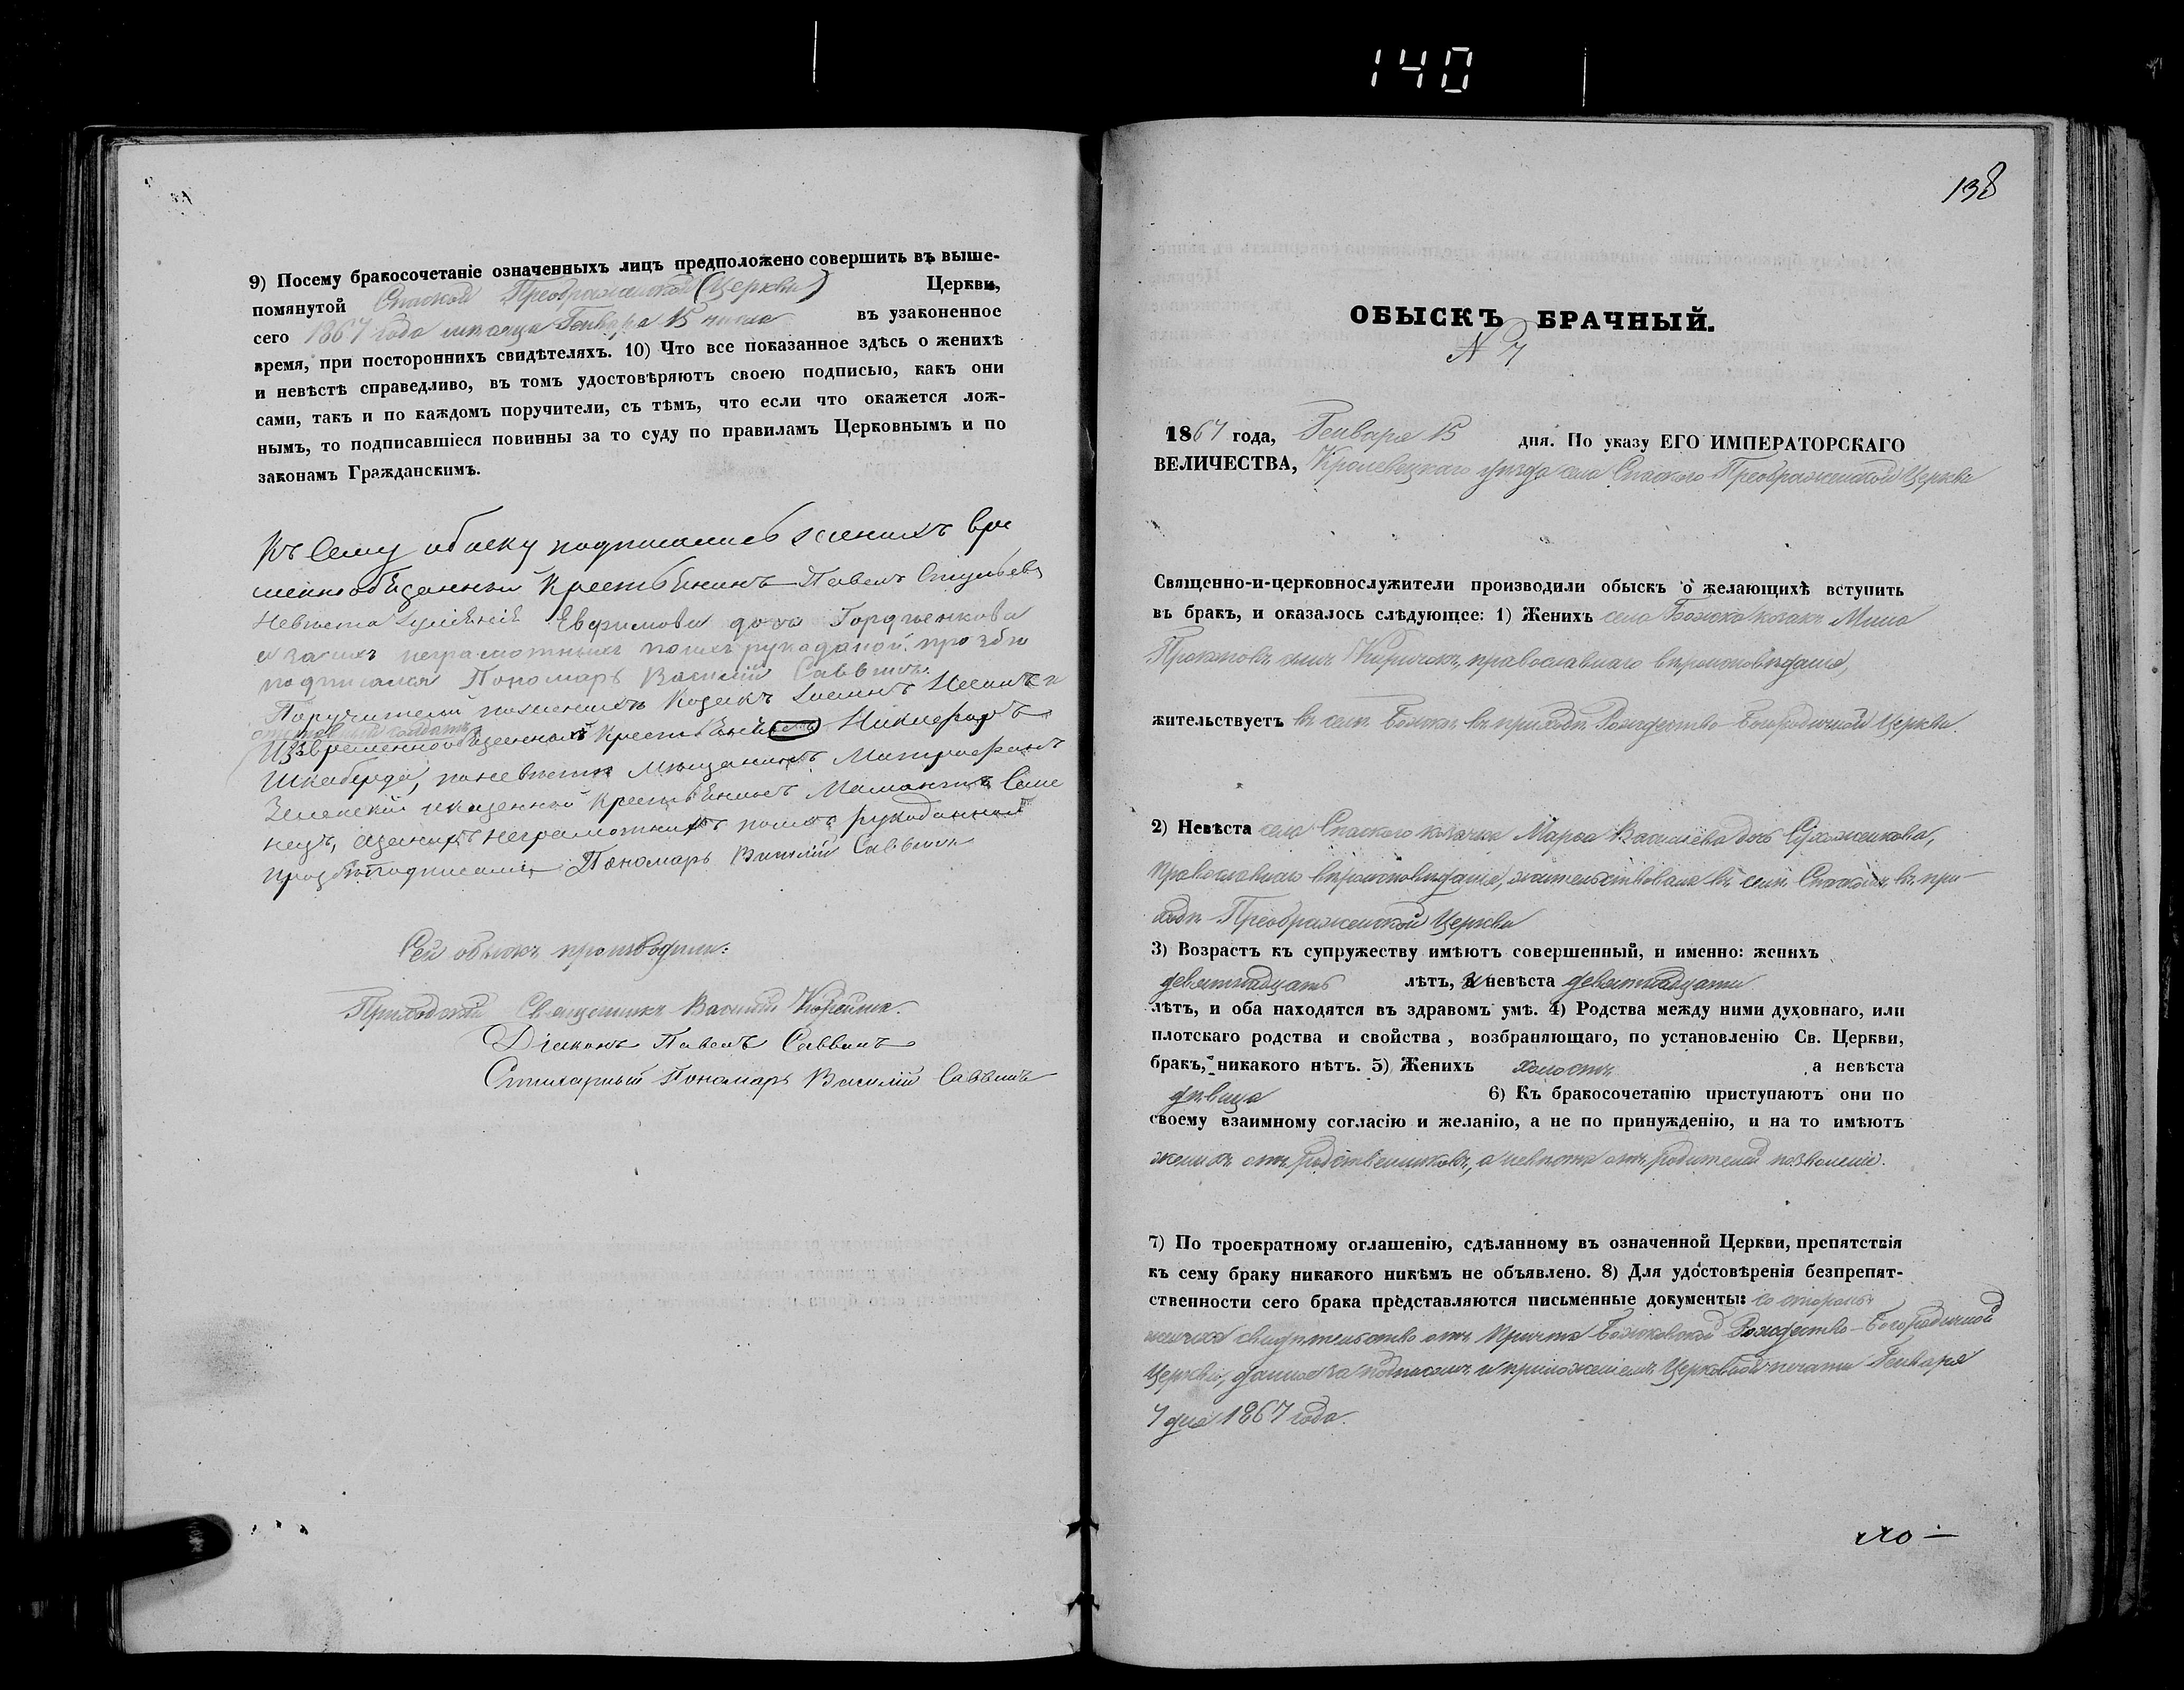 140
9) Посему бракосочетаніе означенныхъ лицъ предположено совершить въ выше-
помянутой Спаской Преображенской (Церкви) Церкви,
сего 1867 года мѣсяца Генваря 15 числа въ узаконенное
время, при постороннихъ свидѣтеляхъ. 10) Что все показанное здѣсь о женихѣ
и невѣстѣ справедливо, въ томъ удостовѣряютъ своею подписью, какъ они
сами, такъ и по каждомъ поручители, съ тѣмъ, что если что окажется лож-
нымъ, то подписавшіеся повинны за то суду по правиламъ Церковнымъ и по
законамъ Гражданскимъ.
Къ Сему обыску подписались женихъ вре
менно обязанный Крестьянинъ Павелъ
Невѣста Евфимова дочь Гордѣенкова
а за ихъ неграмотныхъ поихъ рукоданой прозбѣ
подписался Пономарь Василій Саввичъ.
Поручители поженихѣ Козакъ
отставный солдатъ
Никифоръ
Шкаберда, поневѣстѣ мѣщанинъ Митрофанъ
Зеленскій и казенной крестьянинъ
нецъ, азанихъ неграмотныхъ поихъ рукоданной
прозбѣ подписался Пономарь Василій Саввичъ
Сей обыскъ производили:
Приходскій Священникъ Василій
Діаконъ Павелъ Саввичъ
Стихарный Пономарь Василій Саввичъ
138
ОБЫСКЪ БРАЧНЫЙ.
N 7
1867 года, Генваря 15 дня. По указу ЕГО ИМПЕРАТОРСКАГО
ВЕЛИЧЕСТВА, Кролевецкаго уѣзда села Спаского Преображенской Церкви
Священно-и-церковнослужители производили обыскъ о желающихъ вступить
въ бракъ, и оказалось слѣдующее: 1) Женихъ села Божка козакъ Мина
Прокповъ сынъ Кириčокъ, православнаго вѣроисповѣданія,
жительствуетъ въ селѣ Божкѣ въ приходѣ Рождество-Богородичной Церкви.
2) Невѣста села Спаского козачка Марѳа Василіева дочь
православнаго вѣроисповѣданія, жительствовала въ селѣ Спаскомъ въ при-
ходѣ Преображенской Церкви
3) Возрастъ къ супружеству имѣютъ совершенный, и именно: женихъ
девятнадцать лѣтъ, а невѣста девятнадцати
лѣтъ, и оба находятся въ здравомъ умѣ. 4) Родства между ними духовнаго, или
плотскаго родства и свойства, возбраняющаго, по установленію Св. Церкви,
бракъ, никакого нѣтъ. 5) Женихъ холостъ, а невѣста
дѣвица 6) Къ бракосочетанію приступаютъ они по
своему взаимному согласію и желанію, а не по принужденію, и на то имѣютъ
женихъ отъ родственниковъ, а невѣста отъ родителей позволеніе.
7) По троекратному оглашенію, сдѣланному въ означенной Церкви, препятствія
къ сему браку никакого никѣмъ не объявлено. 8) Для удостовѣренія безпрепят-
ственности сего брака представляются письменные документы: со стороны
жениха свидѣтельство отъ причта Божковской Рождество-Богородичной
Церкви, данное за подписомъ и приложеніемъ Церковной печати Генваря
7 дня 1867 года.